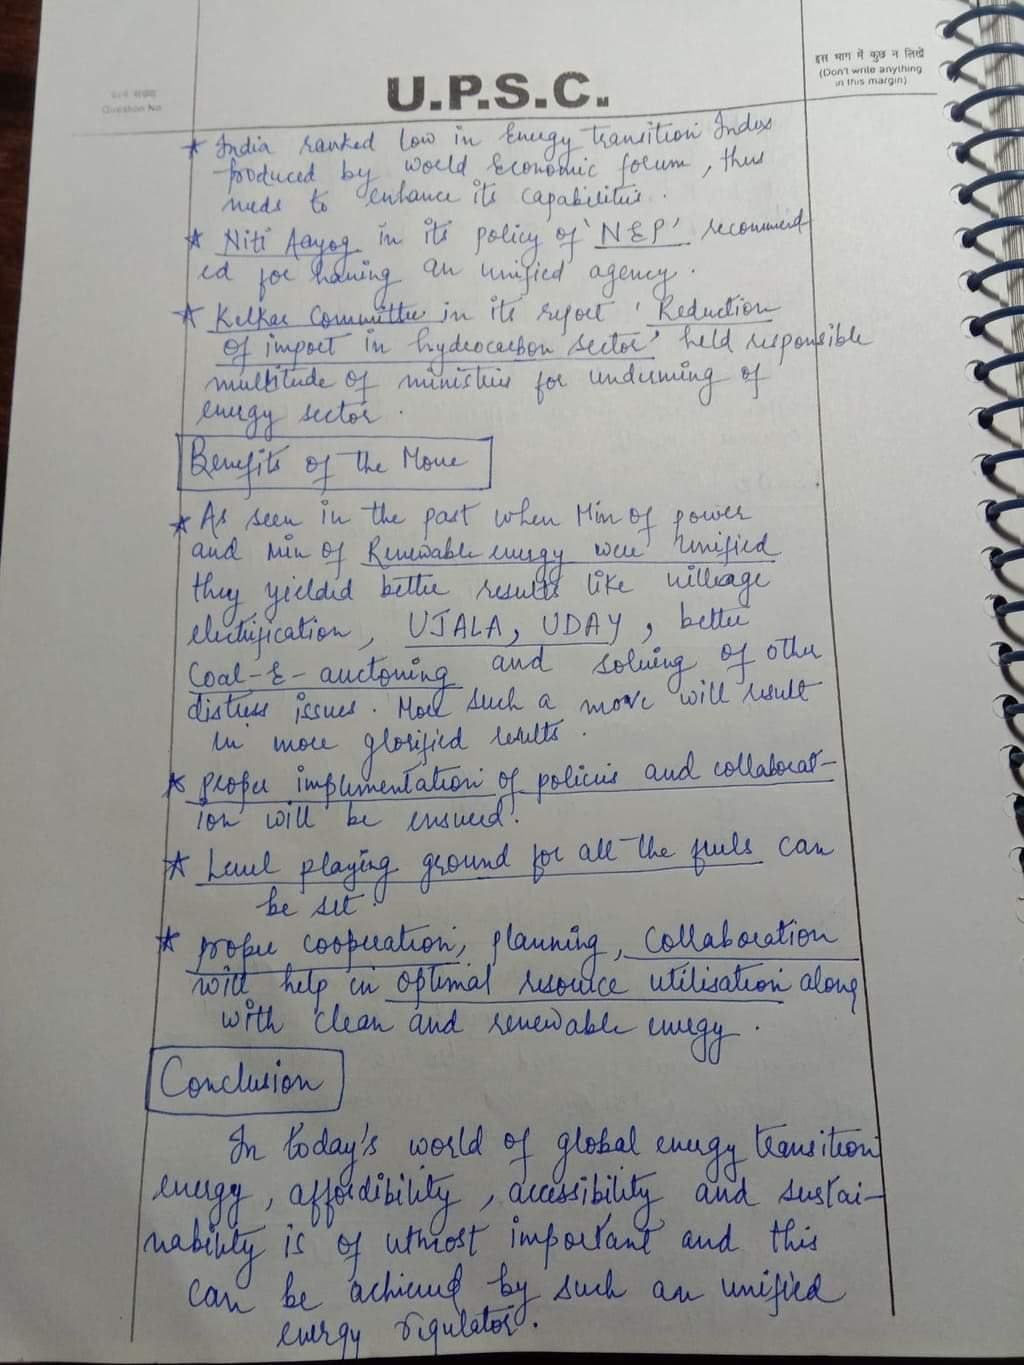 प्रश्न संख्या
Question No.
U.P.S.C.
इस भाग में कुछ न लिखें
(Don't write anything
in this margin)
* India ranked low in Energy transition Index
produced by World Economic forum, thus
needs to enhance its capabilities.
* Niti Aayog in its policy of 'NEP' recommend
ed for having an unified agency.
* Kelkar Committee in its report 'Reduction
of import in hydrocarbon sector' held responsible
multitude of ministries for underming of
energy sector.
Benefits of the Move
* As seen in the past when Min of power
and Min of Renewable energy were unified
they yielded better results like village
electrification, UJALA, UDAY, better
Coal-E-auctoning and solving of other
distress issues. More such a move will result
in more glorified results.
* proper implementation of policies and collaborat-
ion will be ensured.
* Level playing ground for all the fuels can
be set.
* proper cooperation, planning, collaboration
will help in optimal resource utilisation along
with clean and renewable energy.
Conclusion
In today's world of global energy transition
energy, affordibility, accessibility and sustai-
nability is of utmost important and this
can be achieved by such an unified
energy regulator.